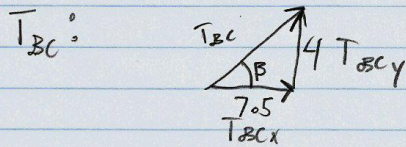 T_BC:
T_BC
β
4 T_BCy
7.5
T_BCx